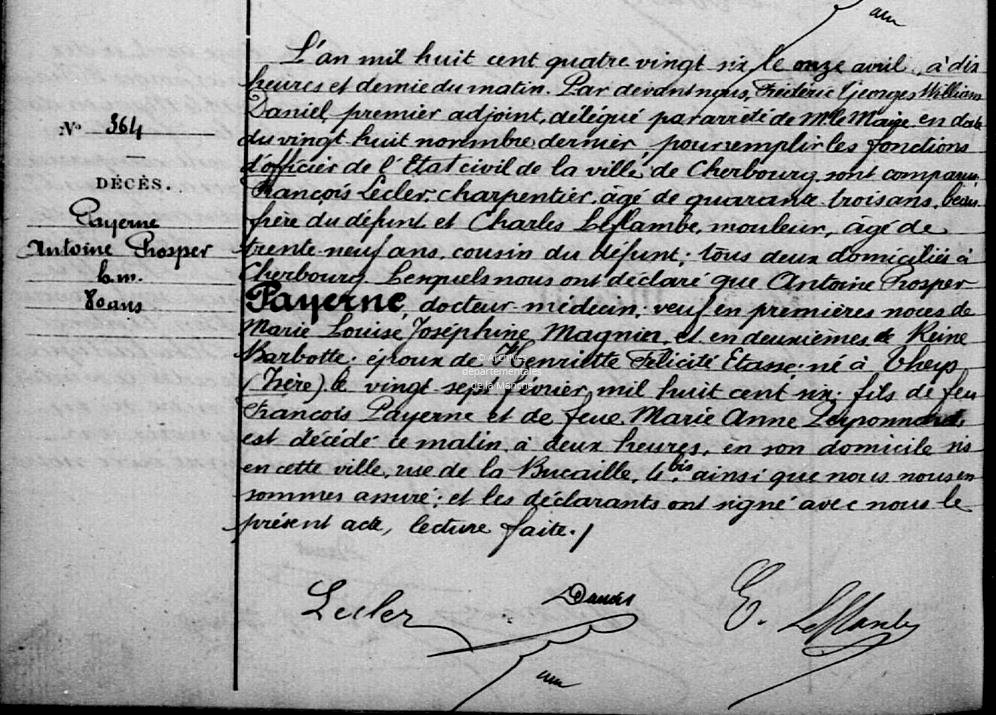 L'an mil huit cent quatre vingt six, le onze avril, à dix
heures et demie du matin. Par devant nous, Frédéric Georges William
Daniel, premier adjoint, délégué par arrêté de Mr le Maire en date
du vingt huit novembre dernier, pour remplir les fonctions
d'officier de l'Etat civil de la ville de Cherbourg, sont comparus
François Lecler, charpentier, âgé de quarante trois ans, beau-
frère du défunt et Charles Leflambe, mouleur, âgé de
trente neuf ans, cousin du défunt; tous deux domiciliés à
Cherbourg. Lesquels nous ont déclaré que Antoine Prosper
Payerne, docteur-médecin; veuf en premières noces de
Marie Louise Joséphine Magnin, et en deuxièmes de Reine
Barbotte; époux de Henriette Félicité Etasse; né à Theys
(Isère), le vingt-sept février, mil huit cent six; fils de feu
François Payerne et de feue Marie Anne
est décédé ce matin, à deux heures, en son domicile sis
en cette ville, rue de la Bucaille, 4 bis, ainsi que nous nous en
sommes assuré; et les déclarants ont signé avec nous le
présent acte, lecture faite./
No 364
DÉCÈS.
Payerne
Antoine Prosper
h.m.
80 ans
© Archives
départementales
de la Manche
Lecler
Daniel
E. Leflambe